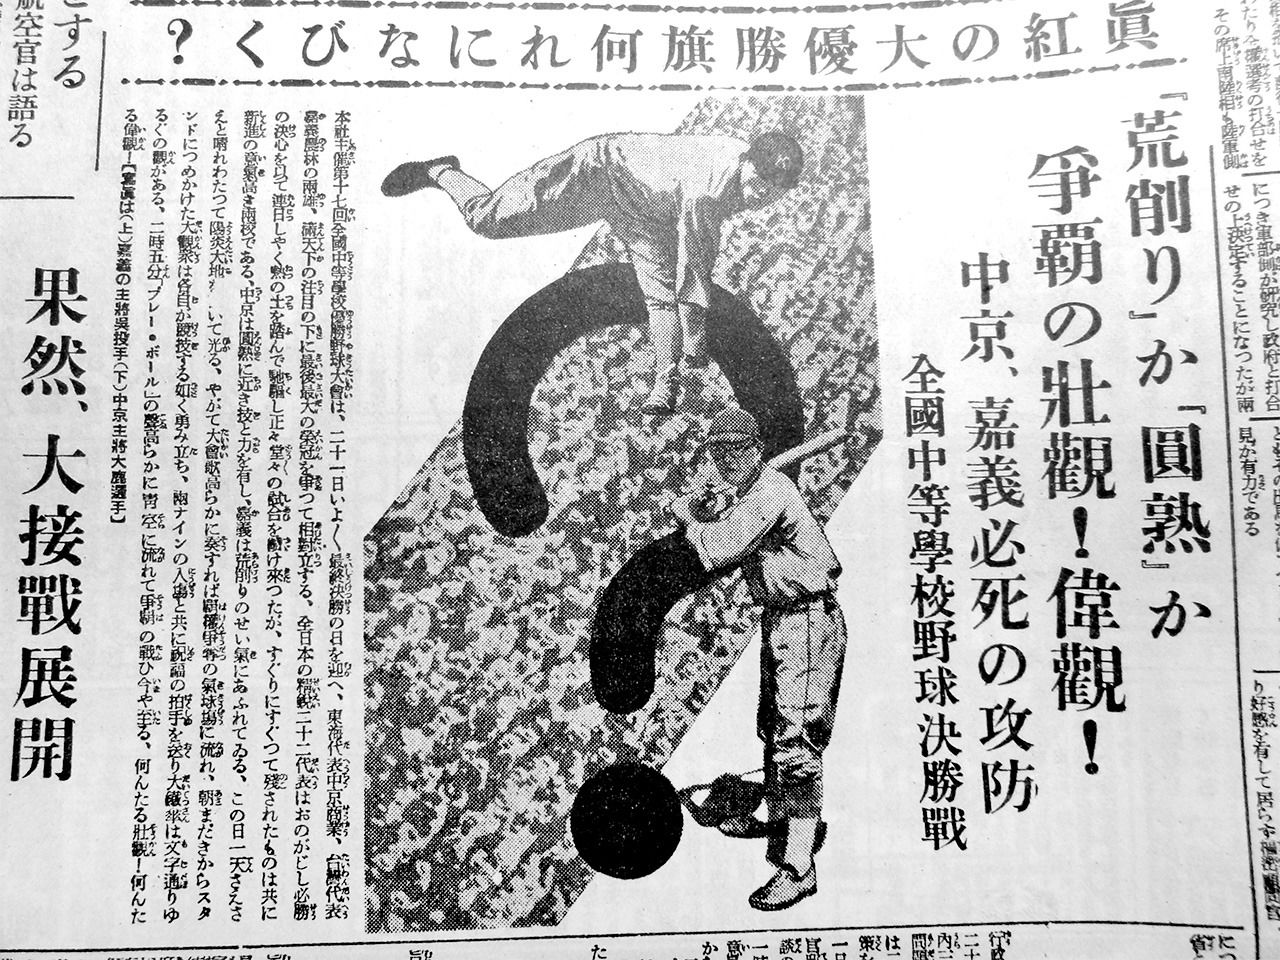 眞紅の大優勝旗何れになびく？
『荒削り』か『圓熟』か
爭覇の壯觀！偉觀！
中京、嘉義必死の攻防
全國中等學校野球決勝戰
本社主催第十七回全國中等學校優勝野球大會は、二十一日いよ〱最終決勝の日を迎へ、東海代表中京商業、台灣代表
嘉義農林の兩雄、滿天下の注目の下に最後最大の榮冠を爭つて相對立する、全日本の精鋭二十二代表はおのがじし必勝
の決心を以て連日しやく熱の土を踏んで馳驅し正々堂々の試合を續け來つたが、すぐりにすぐつて殘されたものは共に
新進の意氣高き兩校である、中京は圓熟に近き技と力を有し、嘉義は荒削りのせい氣にあふれてゐる、この日一天さえさ
えと晴れわたつて陽炎大地 いて光る、やがて大會歌高らかに奏すれば覇權爭奪の氣球場に流れ、朝まだきからスタ
ンドにつめかけた大觀衆は各自が競技する如く勇み立ち、兩ナインの入場と共に祝福の拍手を送り大鐵傘は文字通りゆ
るぐの觀がある、二時五分「プレー・ボール」の聲高らかに靑空に流れて爭覇の戰ひ今や至る、何んたる壯觀！何んた
る偉觀！【寫眞は(上)嘉義の主將吳投手(下)中京主將大鹿選手】
果然、大接戰展開
とする
航空官は語る
その席上南陸相も陸軍側
につき軍部側が研究し政府と打合
せの上決定することになつたが兩
見が有力である